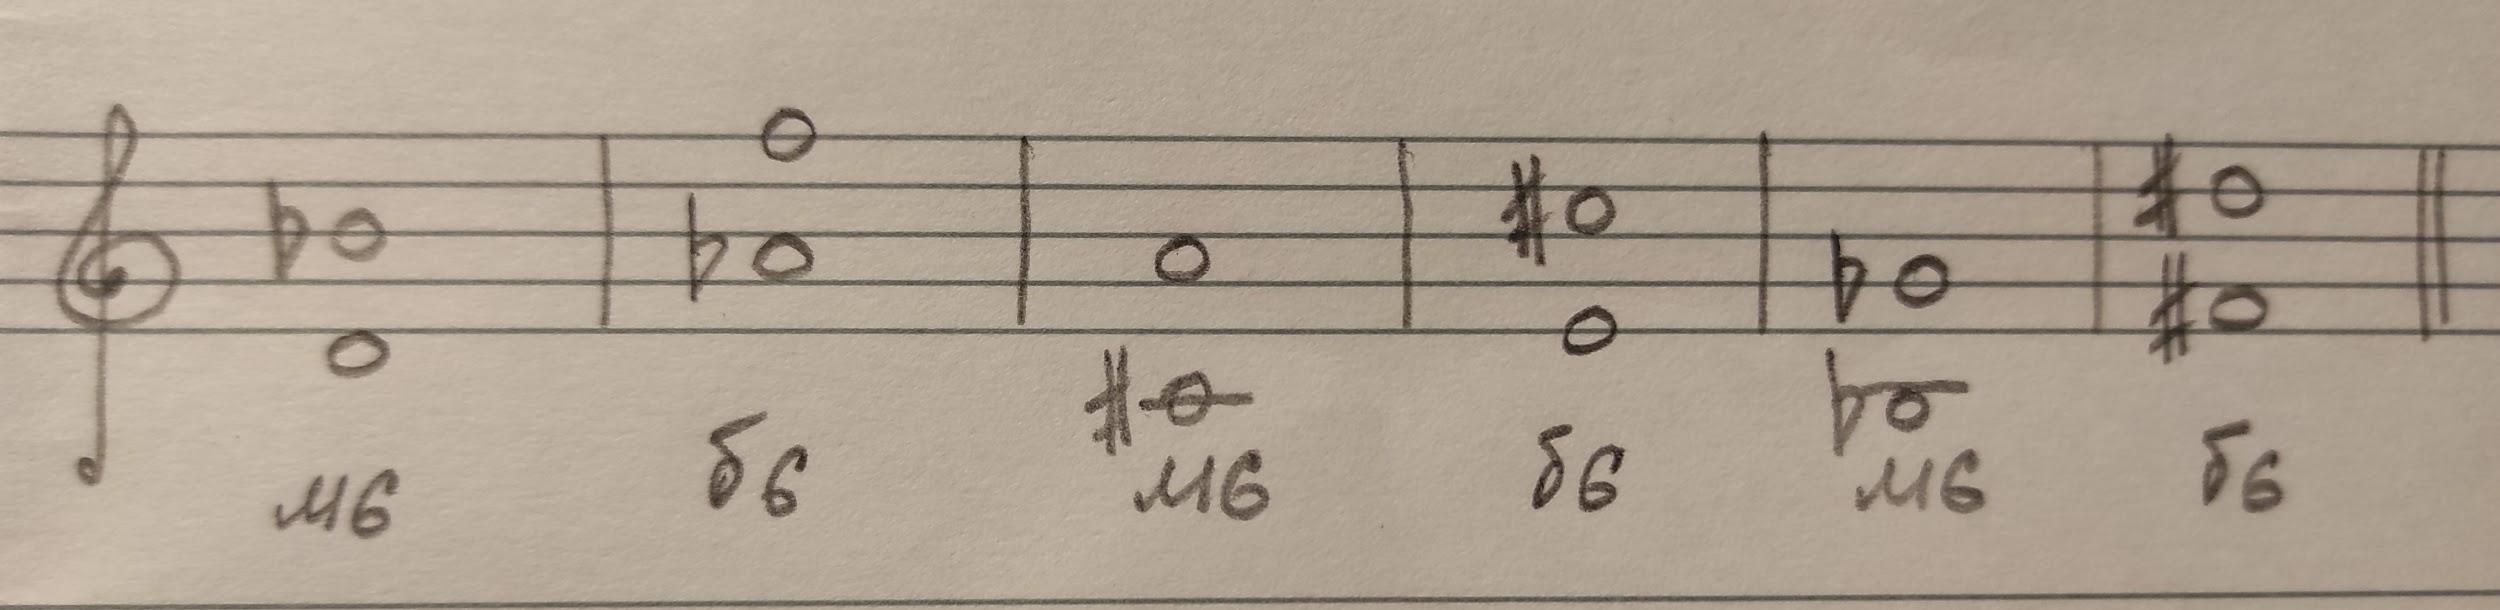 м6 б6 м6 б6 м6 б6